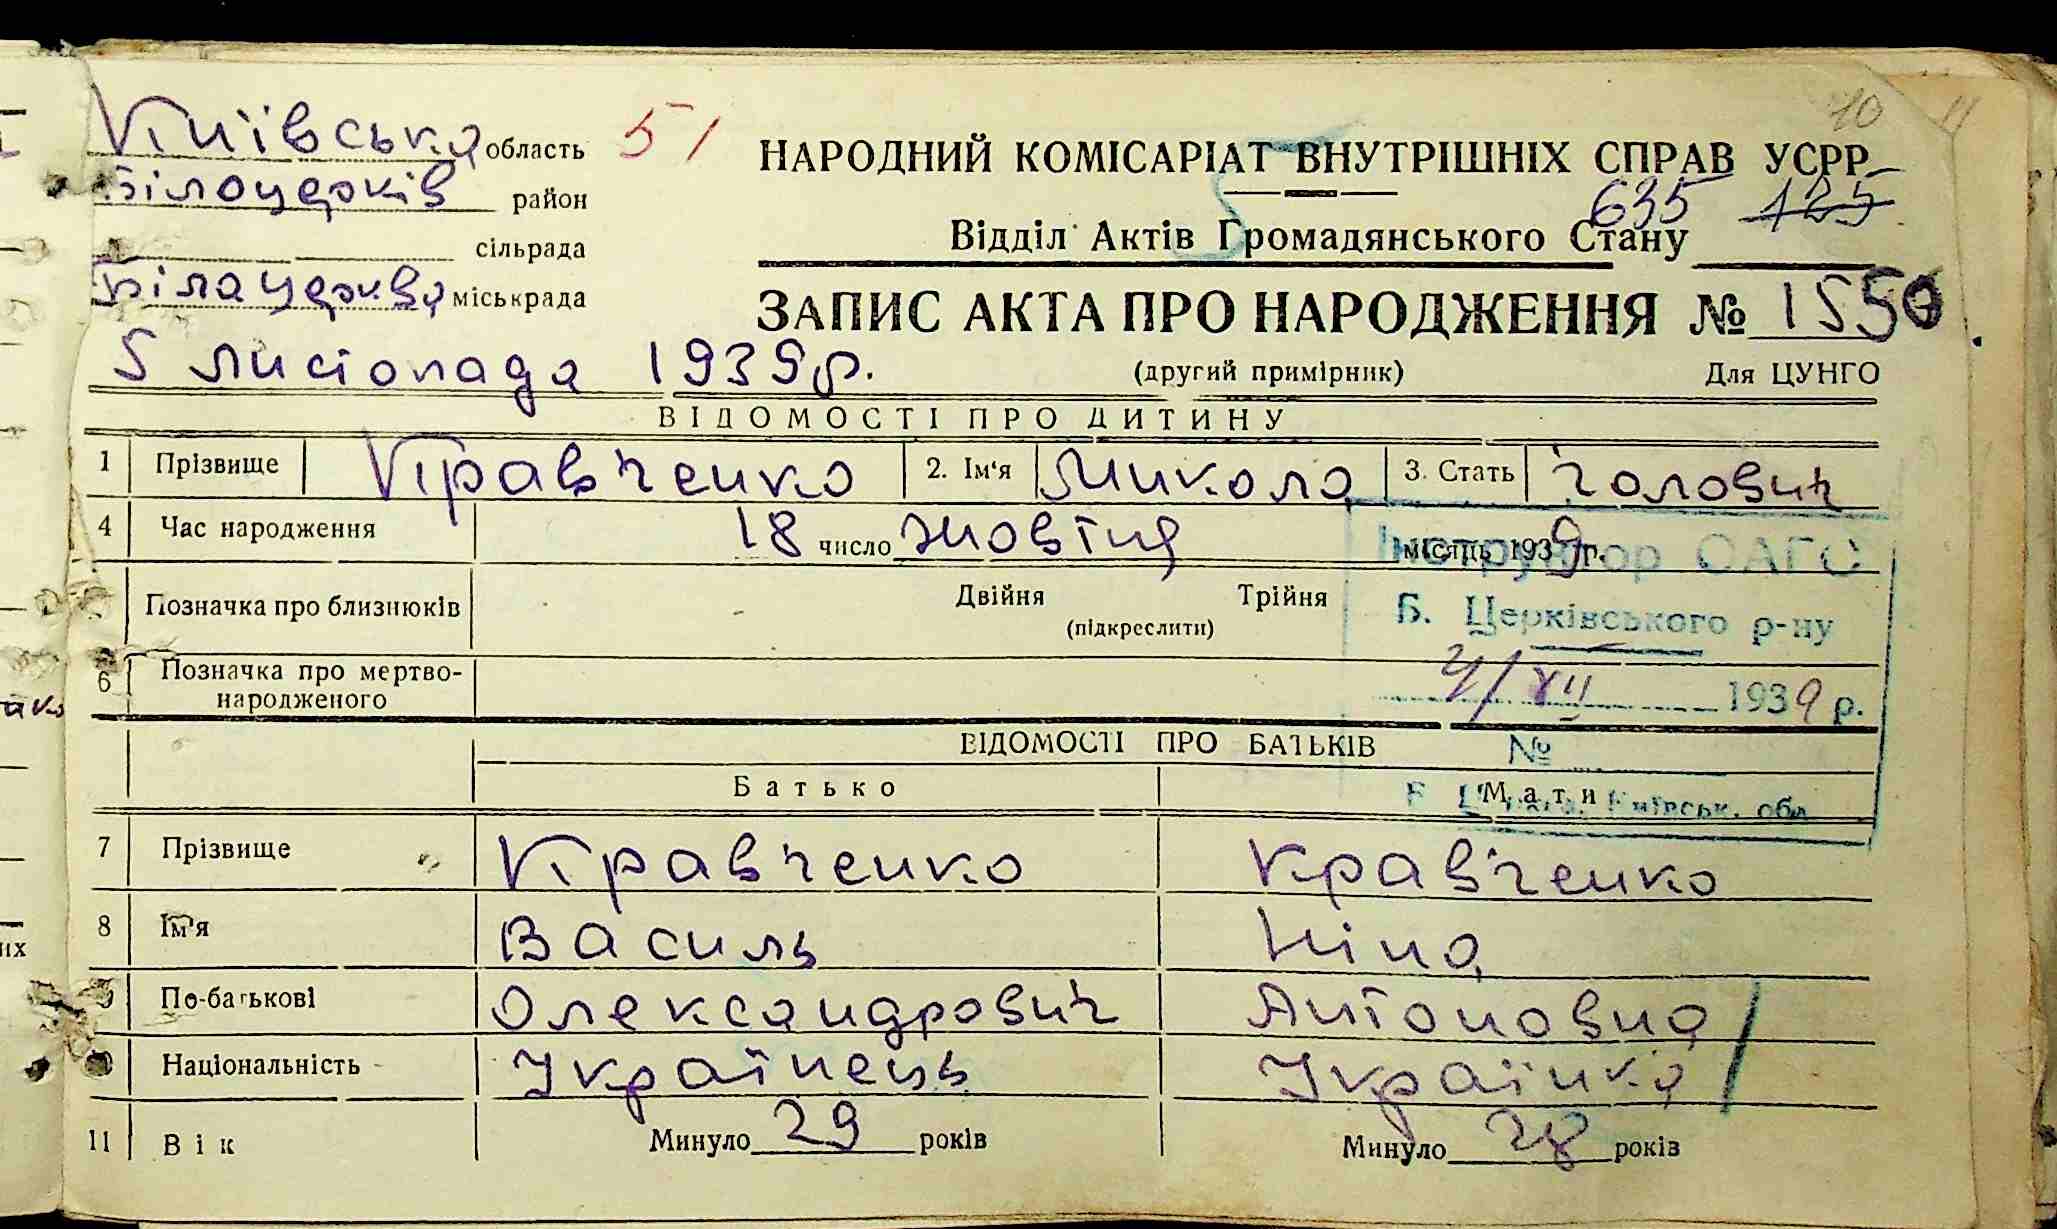 Київська область 51
Білоцерків район
сільрада
Білацерква міськрада
10 11
НАРОДНИЙ КОМІСАРІАТ ВНУТРІШНІХ СПРАВ УСРР
635 125
Відділ Актів Громадянського Стану
ЗАПИС АКТА ПРО НАРОДЖЕННЯ № 1550
5 листопада 1939 р. (другий примірник) Для ЦУНГО
ВІДОМОСТІ ПРО ДИТИНУ
1 Прізвище Кравченко 2. Ім'я Микола 3. Стать чоловіч
4 Час народження 18 число жовтня місяць 1939 р.
Інструктор ОАГС
Позначка про близнюків Двійня Трійня
(підкреслити)
Б. Церківського р-ну
6 Позначка про мертво-
народженого
4/XII 1939 р.
ВІДОМОСТІ ПРО БАТЬКІВ
№
Батько Мати
Київськ. обл
7 Прізвище Кравченко Кравченко
8 Ім'я Василь Ніна
9 По-батькові Олександрович Антоновна
10 Національність Українець Українка
11 Вік Минуло 29 років Минуло 28 років